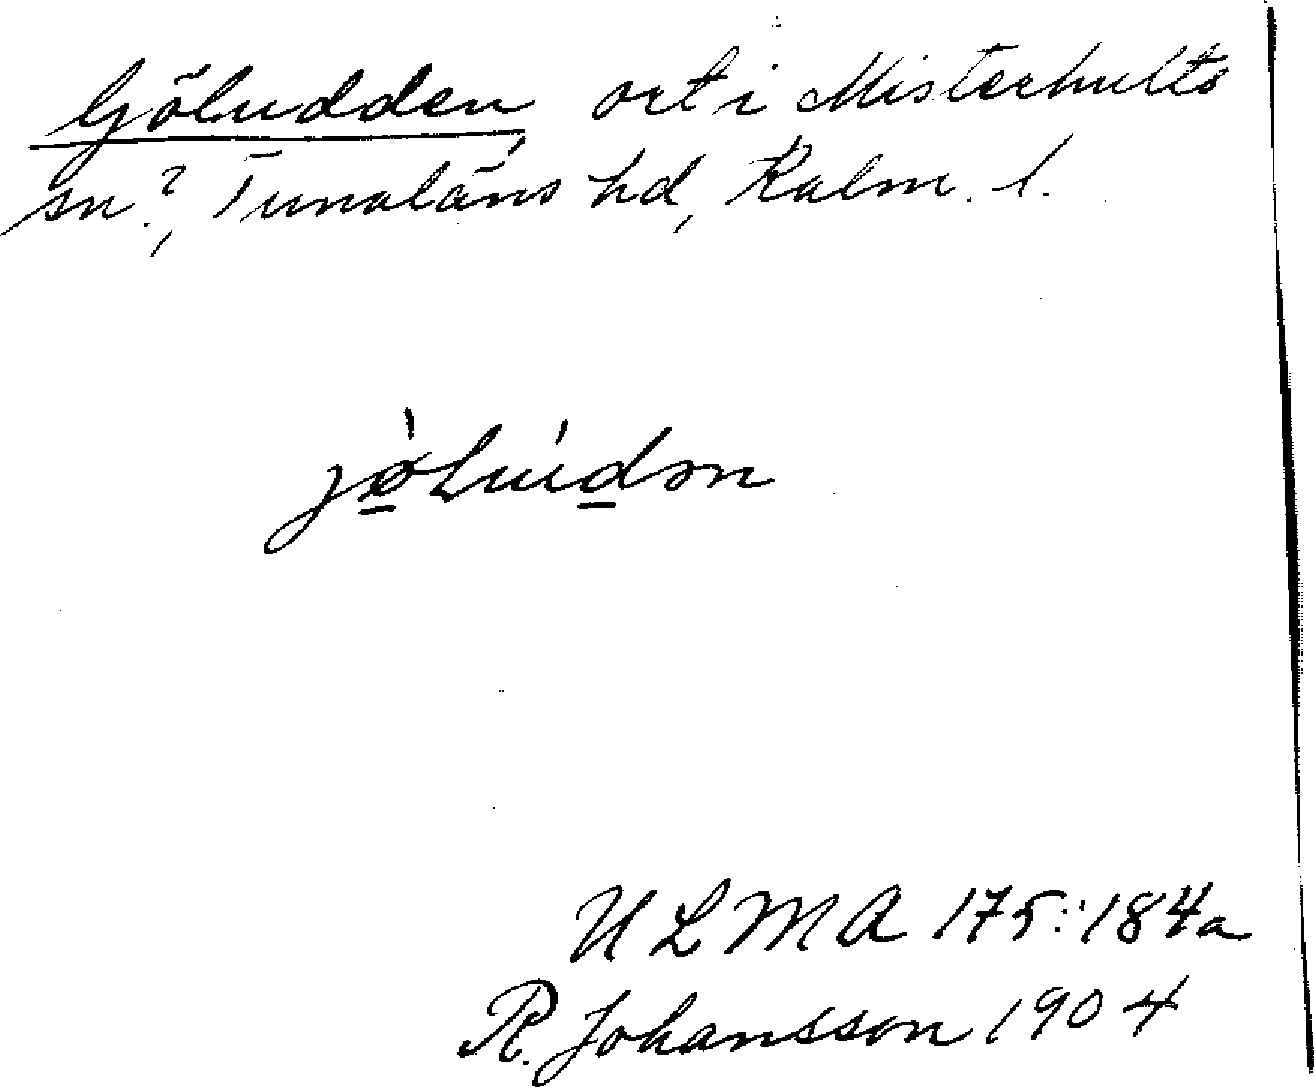 Göludden, ort i Misterhults
sn?, Tunaläns hd, Kalm. l.
jø̠̀Lúd̠ən
ULMA 175:184a
R. Johansson 1904